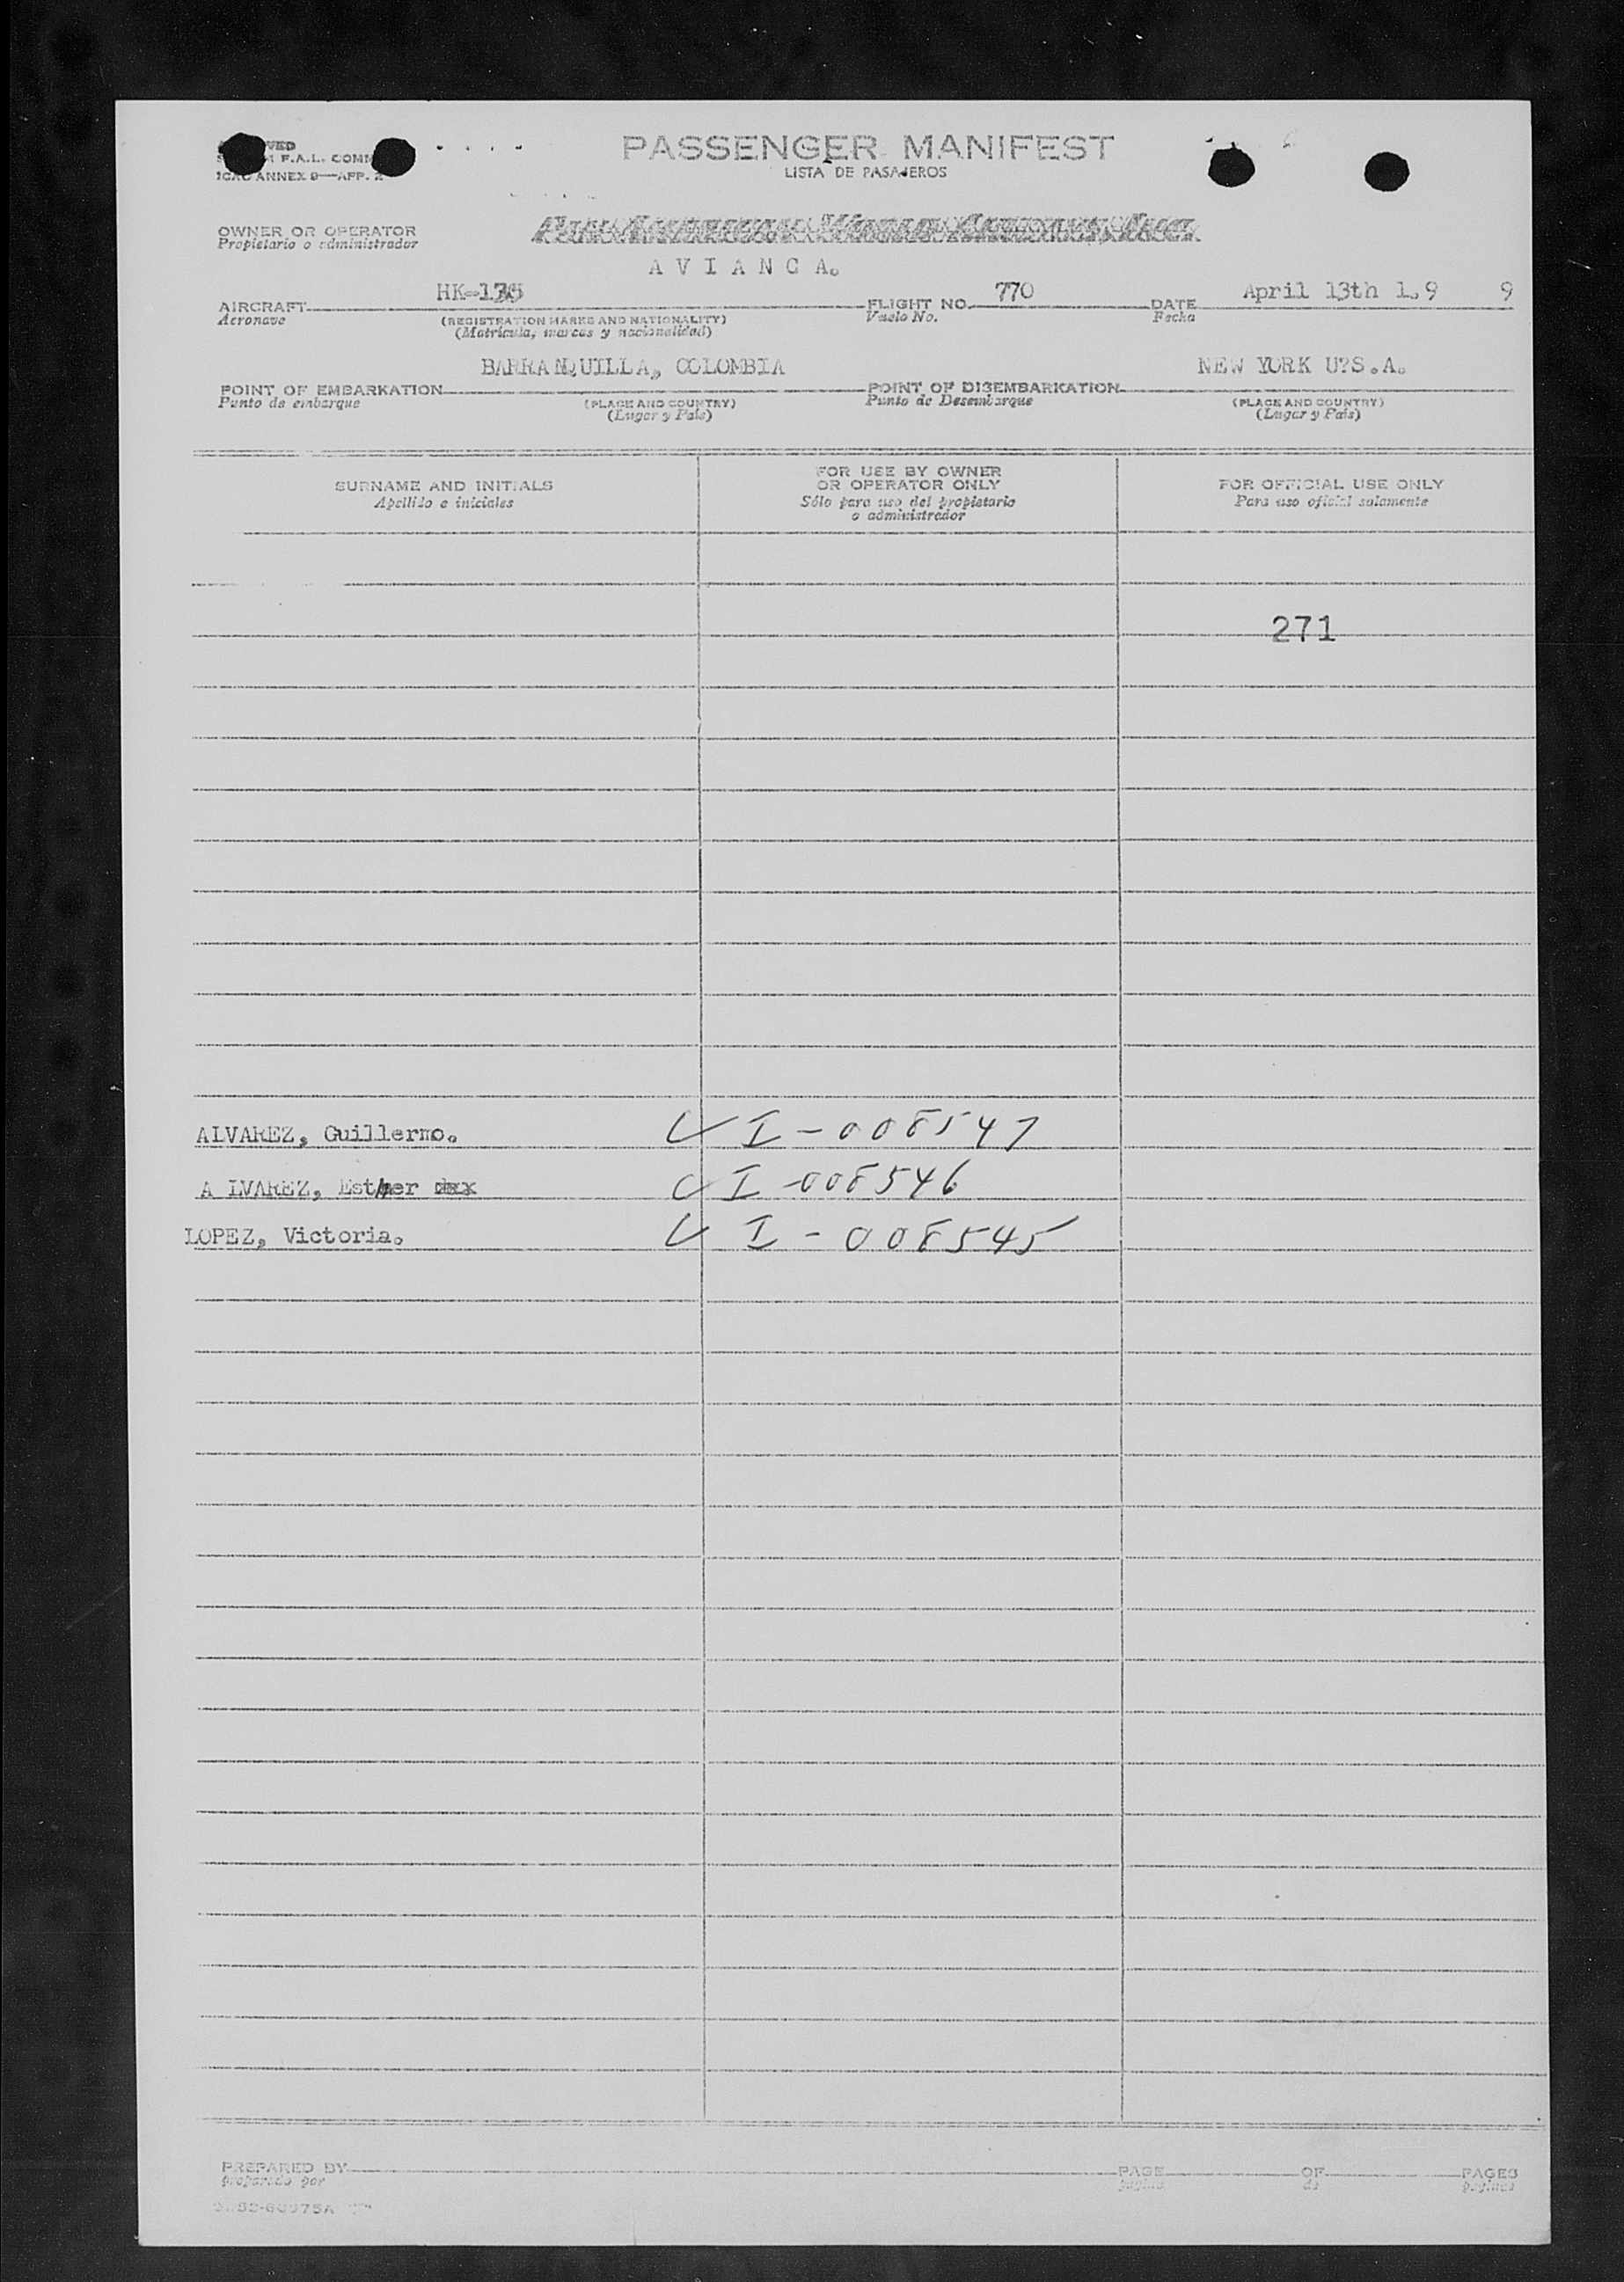 PASSENGER MANIFEST
F.A.L. COMM
LISTA DE PASAJEROS
ICAO ANNEX 9—APP. 2
OWNER OR OPERATOR
Propietario o administrador
A V I A N C A.
HK- 770 April 13th 1.9 9
AIRCRAFT FLIGHT NO. DATE
Aeronave (REGISTRATION MARKS AND NATIONALITY) Vuelo No. Fecha
(Matrícula, marcas y nacionalidad)
BARRANQUILLA, COLOMBIA NEW YORK U?S.A.
POINT OF EMBARKATION POINT OF DISEMBARKATION
Punto de embarque (PLACE AND COUNTRY) Punto de Desembarque (PLACE AND COUNTRY)
(Lugar y País) (Lugar y País)
SURNAME AND INITIALS FOR USE BY OWNER OR OPERATOR ONLY FOR OFFICIAL USE ONLY
Apellido e iniciales Sólo para uso del propietario o administrador Para uso oficial solamente
271
ALVAREZ, Guillermo. I-008547
A LVAREZ, Esther I-008546
LOPEZ, Victoria. I-008545
PREPARED BY PAGE OF PAGES
preparado por página de páginas